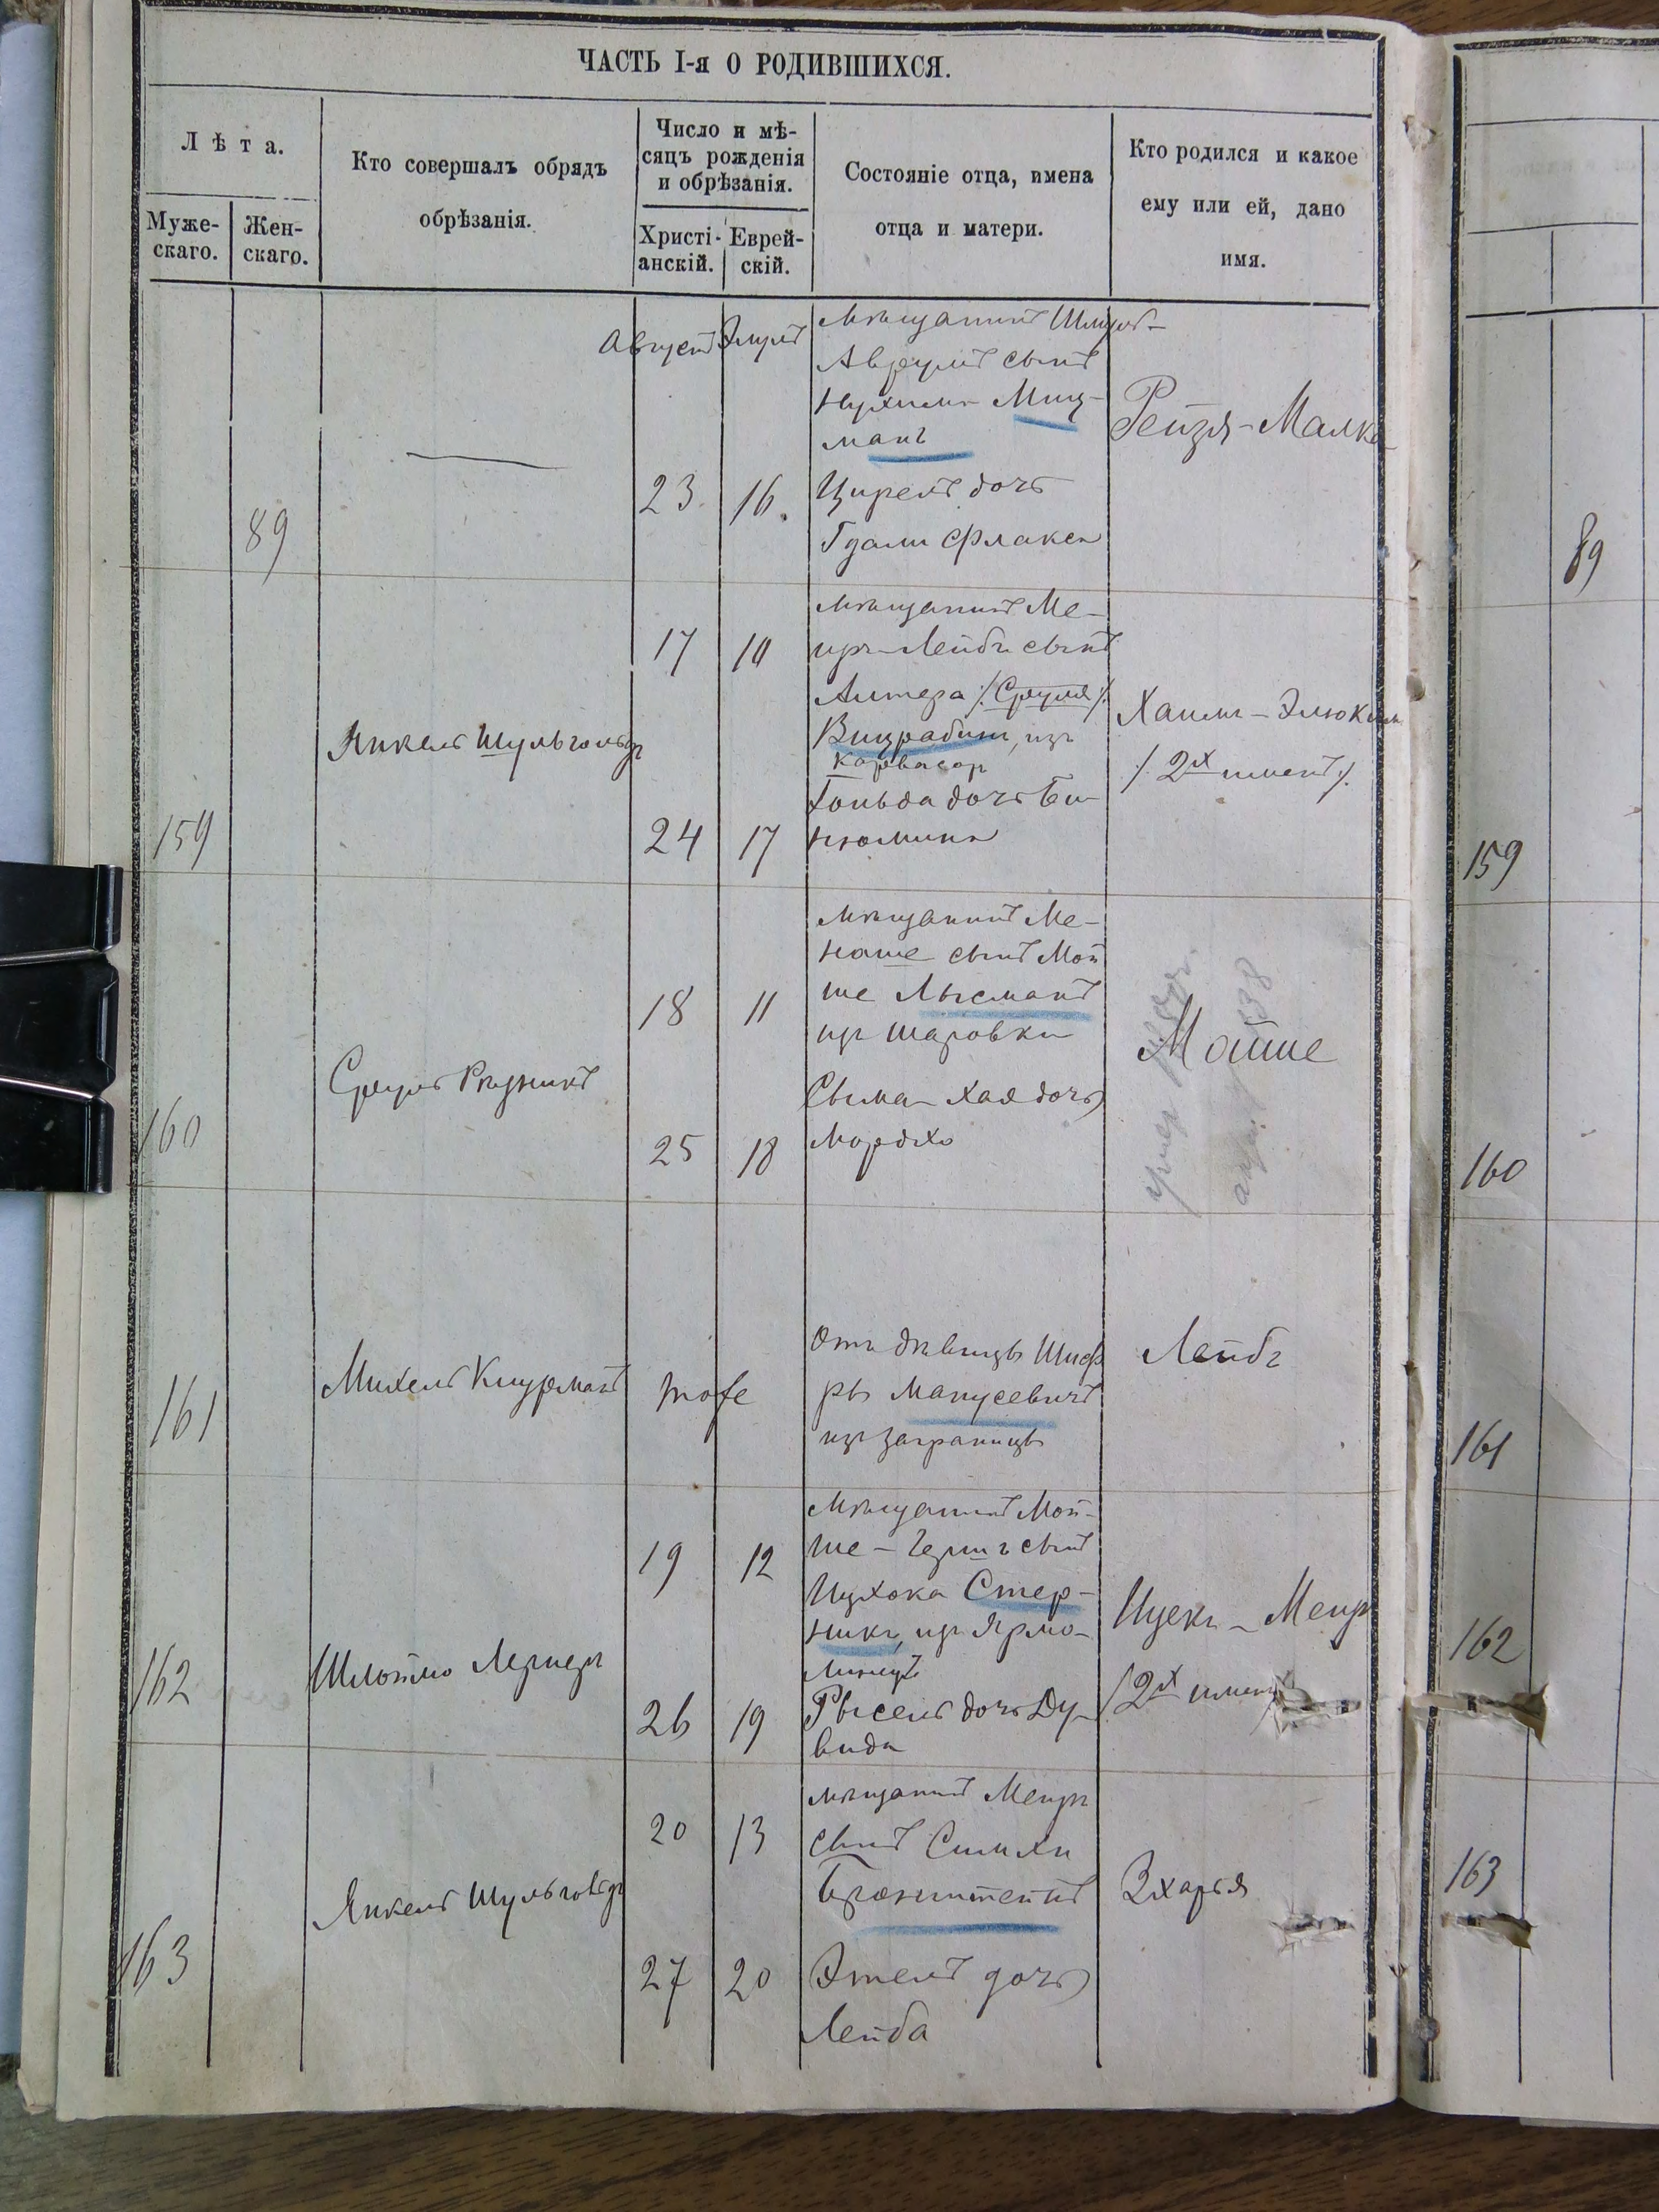 ЧАСТЬ I-я О РОДИВШИХСЯ.
Лѣта.
Муже-
скаго.
Жен-
скаго.
Кто совершалъ обрядъ
обрѣзанія.
Число и мѣ-
сяцъ рожденія
и обрѣзанія.
Христі-
анскій.
Еврей-
скій.
Состояніе отца, имена
отца и матери.
Кто родился и какое
ему или ей, дано
имя.
Августъ Элулъ
89
23 16
мѣщанинъ Шмуль-
Аврумъ сынъ
Нухима Миц-
манъ
Цирель дочь
Гдали Флакса
Рейзя-Малка
89
159
Янкель Шульгольдъ
17 10
24 17
мѣщанинъ Ме-
иръ-Лейбъ сынъ
Алтера /: Сруля :/
изъ
Карвасар
Гольда дочь Би-
нюмина
Хаимъ-Элюкимъ
/: 2х именъ :/
159
160
Сруль Рудникъ
18 11
25 18
мѣщанинъ Ме-
наше сынъ Мой
ше Лысманъ
изъ Шаровки
Сыма-Хая дочь
Мордко
Мойше
умер
160
161
Михель Клурманъ
тоже
Отъ дѣвицы Шиф
ры Манусевичъ
изъ заграницы
Лейбъ
161
162
Шлоймо Лернеръ
19 12
26 19
мѣщанинъ Мой-
ше-Гершъ сынъ
Ицхока Стер-
никъ, изъ Ярмо-
линецъ
Рысель дочь Ду-
вида
Ицекъ-Меир
/2х именъ
162
163
Янкель Шульгольдъ
20 13
27 20
мѣщанинъ Меиръ
сынъ Симхи
Бронштейнъ
Этель дочь
Лейба
Зхарья
163